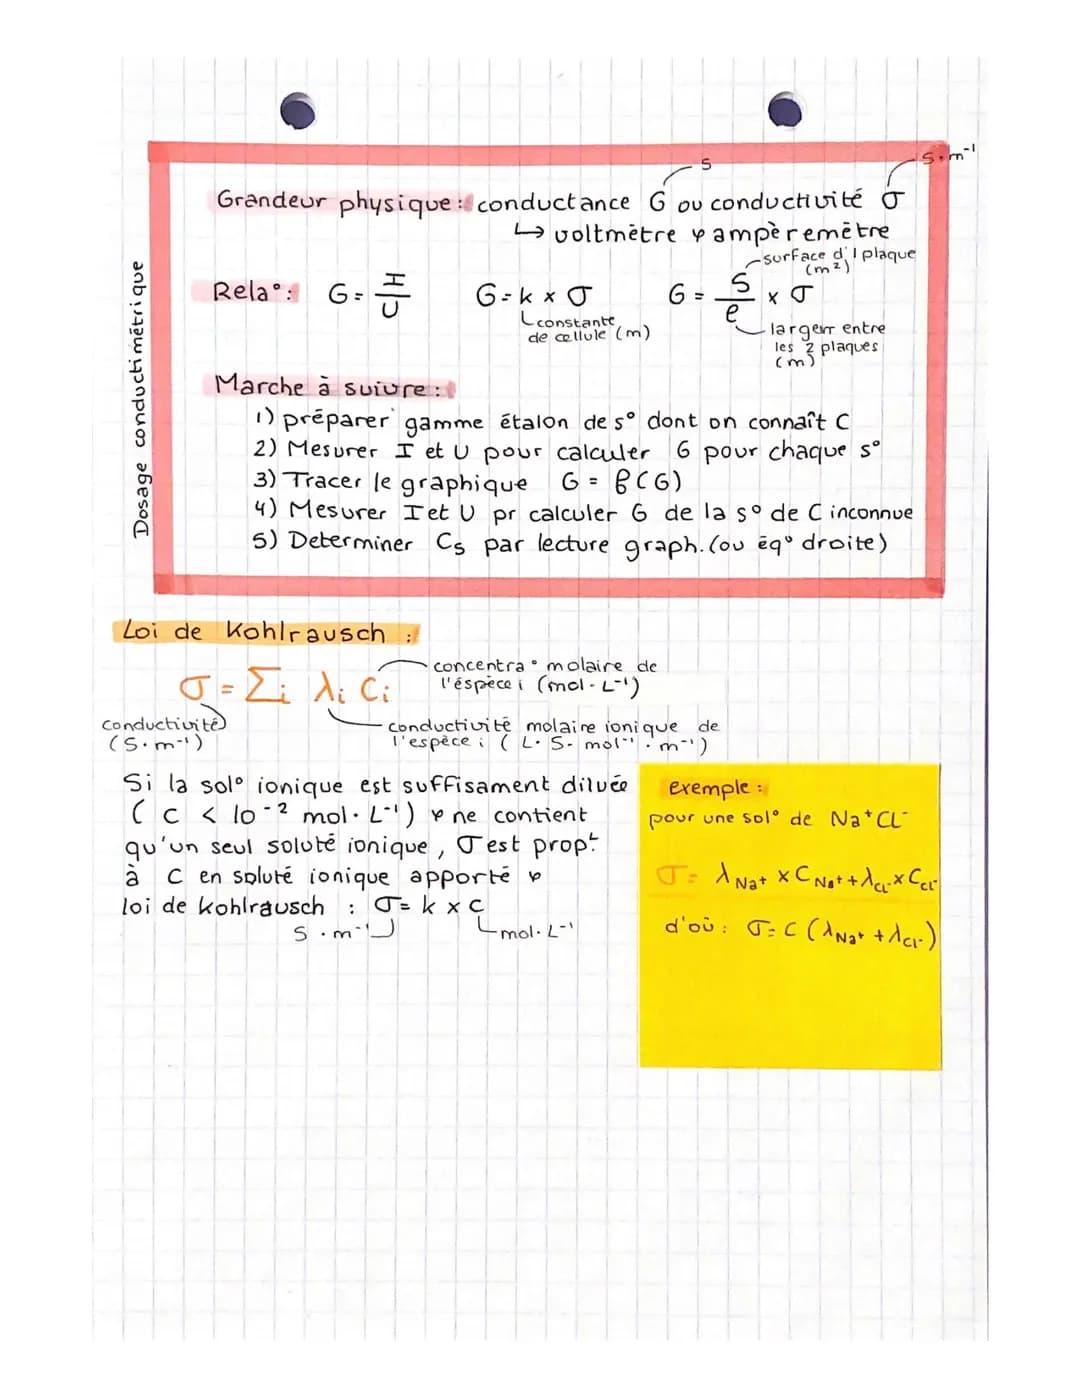 Dosage conductimétrique
S
S.m⁻¹
Grandeur physique : conductance G ou conductivité σ
↳ voltmètre & ampèremètre
surface d'1 plaque
(m²)
Rela°: G = I/U G = k x σ G = S/e x σ
constante
de cellule (m)
largeur entre
les 2 plaques
(m)
Marche à suivre :
1) préparer gamme étalon de s° dont on connaît C
2) Mesurer I et U pour calculer G pour chaque s°
3) Tracer le graphique G = f(G)
4) Mesurer I et U pr calculer G de la s° de C inconnue
5) Determiner Cs par lecture graph. (ou éq° droite)
Loi de Kohlrausch :
concentra° molaire de
l'éspèce i (mol.L⁻¹)
σ = Σi λi Ci
conductivité
(S.m⁻¹)
conductivité molaire ionique de
l'espèce i (L.S.mol⁻¹.m⁻¹)
Si la sol° ionique est suffisament diluée
(C < 10⁻² mol.L⁻¹) & ne contient
qu'un seul soluté ionique, σ est propt
à C en soluté ionique apporté &
loi de kohlrausch : σ = k x C
S.m⁻¹ mol.L⁻¹
exemple :
pour une sol° de Na⁺CL⁻
σ = λNa⁺ x CNa⁺ + λCl⁻ x CCl⁻
d'où : σ = C (λNa⁺ + λCl⁻)